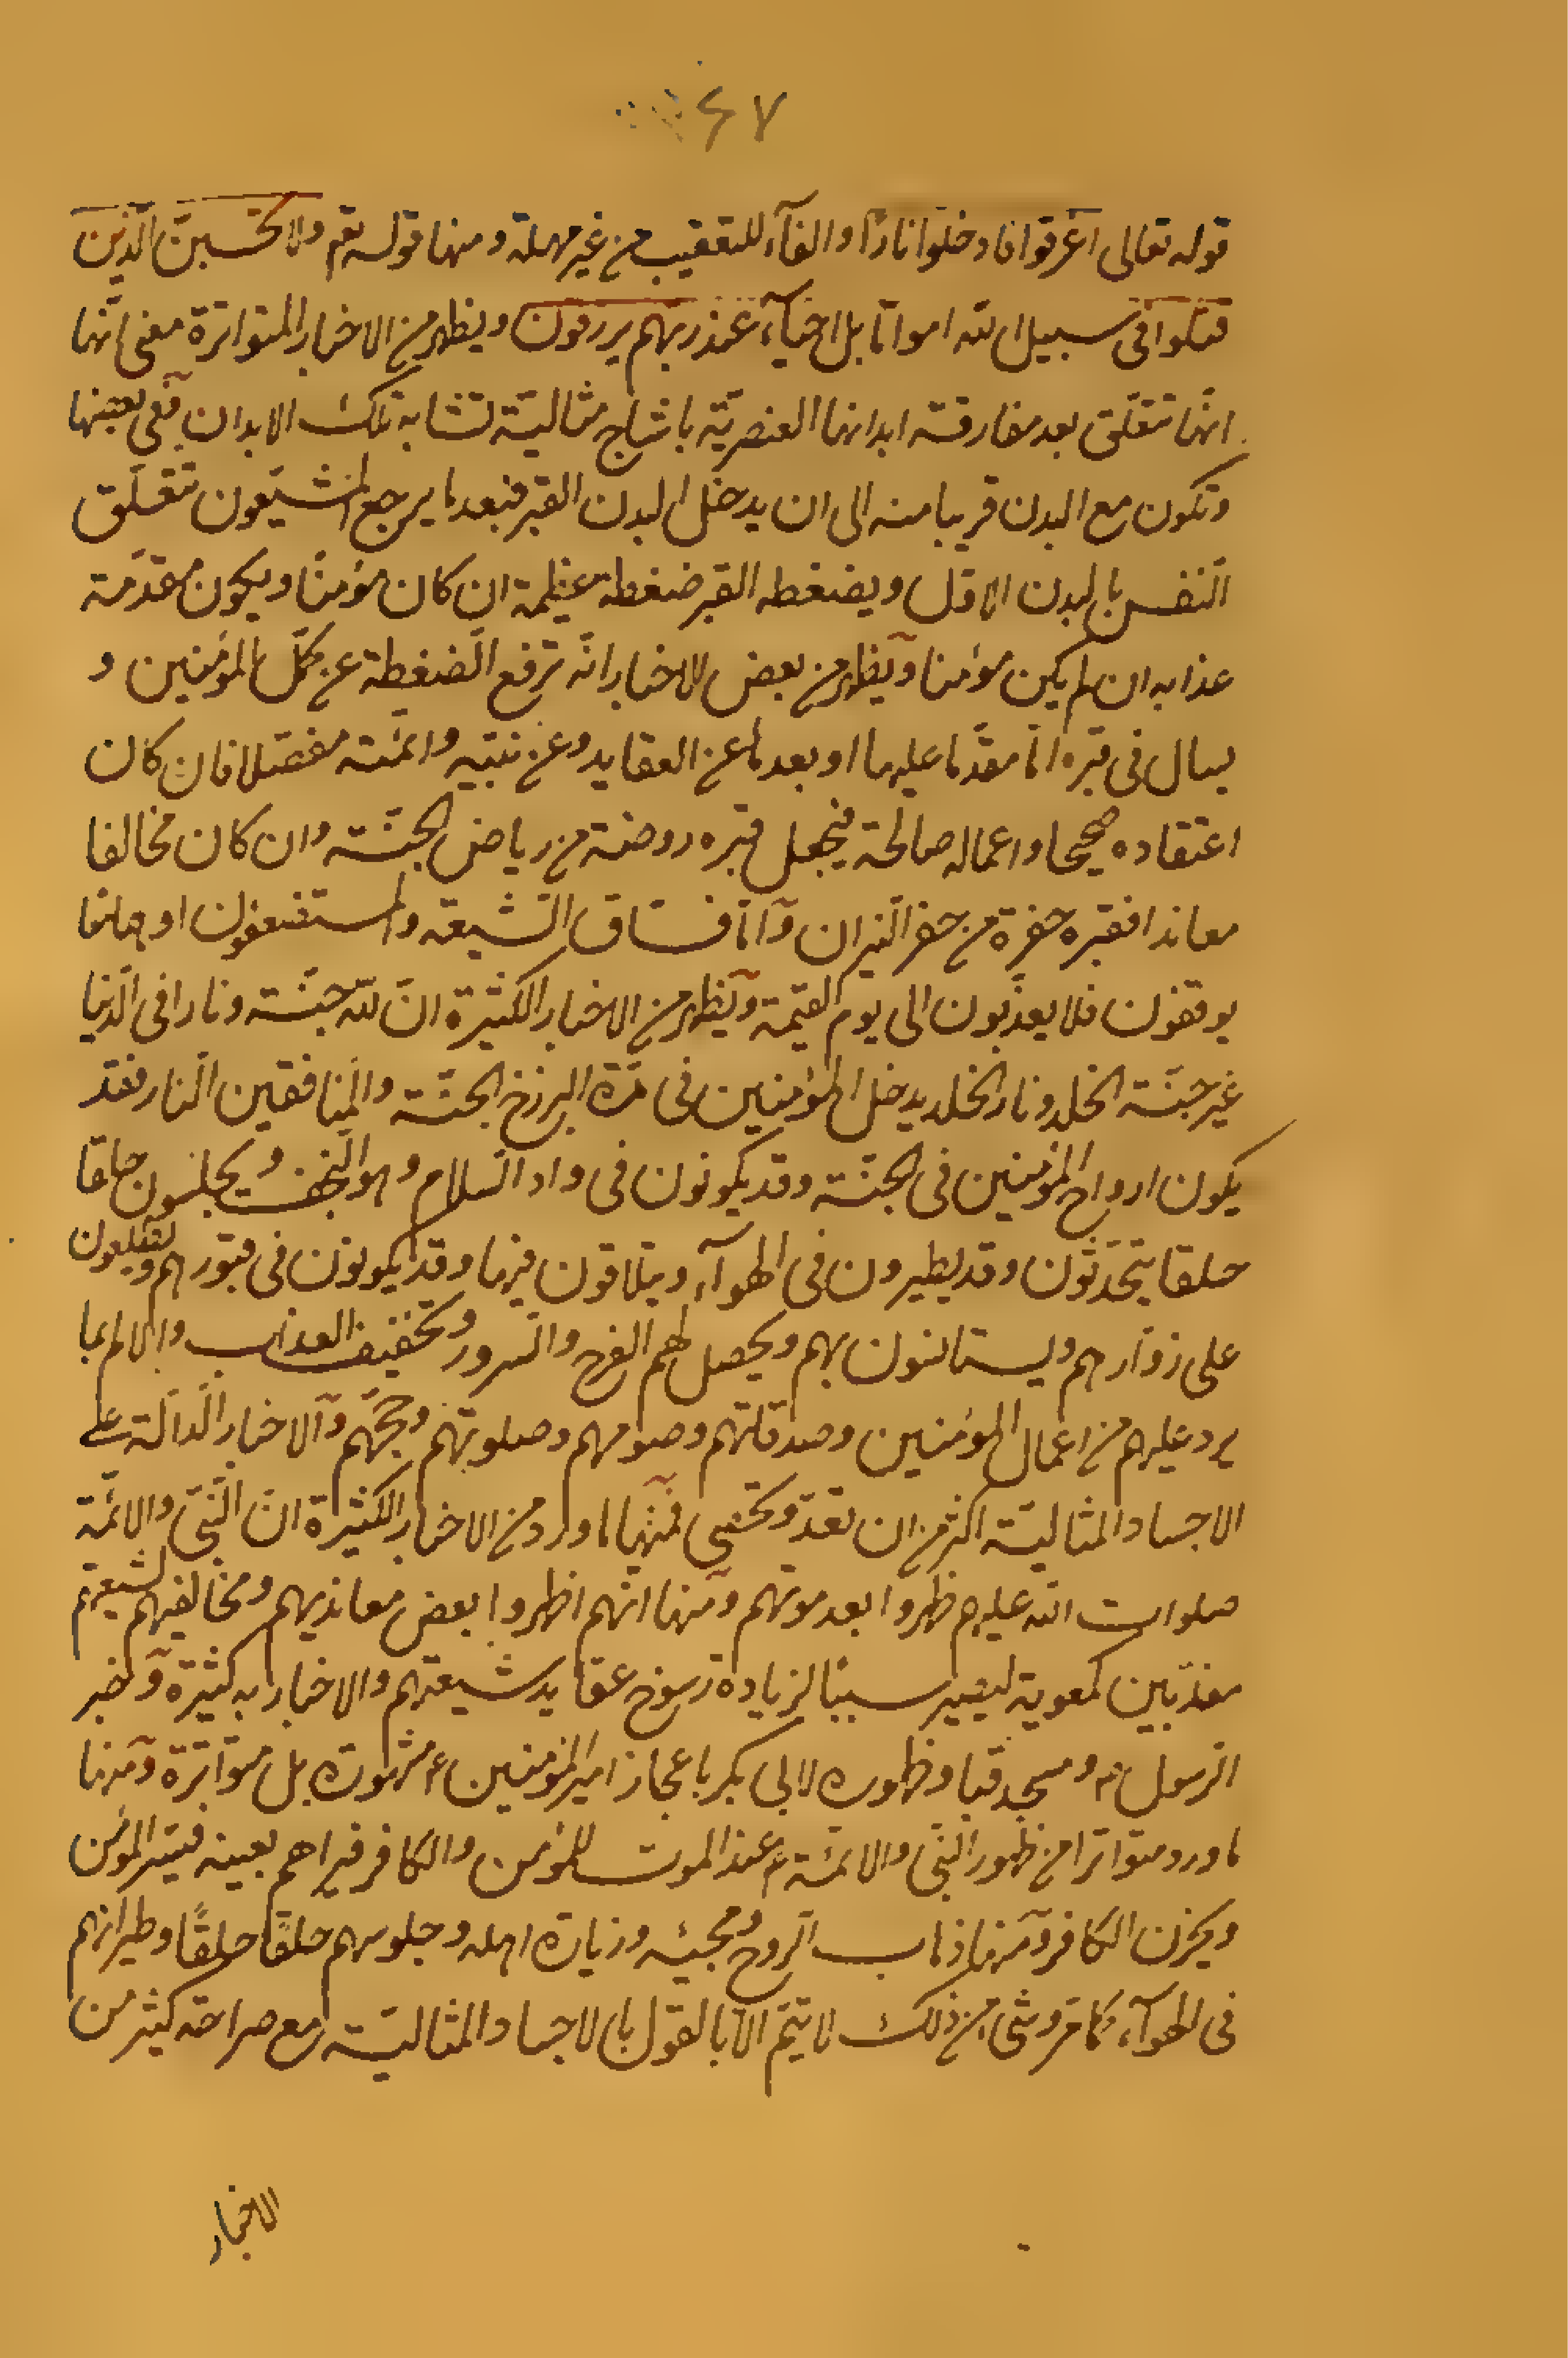 ۶۷
قوله تعالى اغرقوا فادخلوا نارا والفآء للتعقيب من غير مهلة ومنها قوله تعم ولا تحسبن الذين
قتلوا في سبيل الله امواتا بل احيآء عند ربهم يرزقون ويظهر من الاخبار المتواترة معنى انها
انها تتعلق بعد مفارقته ابدانها العنصرية باشباح مثالية تشابه تلك الابدان ففي بعضها
وتكون مع البدن قريبا منه الى ان يدخل البدن القبر فبعد ما يرجع المشيعون تتعلق
النفس بالبدن الاول ويضغطه القبر ضغطة عظيمة ان كان مؤمنا ويكون مقدمة
عذابه ان لم يكن مؤمنا ويظهر من بعض الاخبار انه ترفع الضغطة عن كمل المؤمنين و
يسال في قبره اما مقدما عليها او بعدها عن العقايد وعن نبيه وائمته مفصلا فان كان
اعتقاده صحيحا واعماله صالحة فيجعل قبره روضة من رياض الجنة وان كان مخالفا
معاندا فقبره حفرة من حفر النيران واما فساق الشيعة والمستضعفون او
يوقفون فلا يعذبون الى يوم القيمة ويظهر من الاخبار الكثيرة ان لله جنة ونارا في الدنيا
غير جنة الخلد ونار الخلد يدخل المؤمنين في مدة البرزخ الجنة والمنافقين النار فقد
يكون ارواح المؤمنين في الجنة وقد يكونون في واد السلام وهو النجف ويجلسون حلقا
حلقا يتحدثون وقد يطيرون في الهوآء ويتلاقون فيها وقد يكونون في قبورهم ويطلعون
على زوارهم ويستانسون بهم ويحصل لهم الفرح والسرور وتخفيف العذاب والالم بما
يرد عليهم من اعمال المؤمنين وصدقاتهم وصومهم وصلوتهم وحجهم والاخبار الدالة على
الاجساد المثالية اكثر من ان تعد وتحصى فمنها ما ورد من الاخبار الكثيرة ان النبي والائمة
صلوات الله عليهم ظهروا بعد موتهم ومنها انهم اظهروا بعض معانديهم ومخالفيهم لشيعتهم
معذبين كمعوية ليصير سببا لزيادة رسوخ عقايد شيعتهم والاخبار به كثيرة وخبر
الرسول ص ومسجد قبا وظهوره لابي بكر باعجاز امير المؤمنين ع مشهورة بل متواترة ومنها
ما ورد متواترا من ظهور النبي والائمة ع عند الموت للمؤمن والكافر فيراهم بعينه فيسر المؤمن
ويحزن الكافر ومنها ذهاب الروح ومجيئه وزيارة اهله وجلوسهم حلقا حلقا وطيرانهم
في الهوآء كما مر وشئ من ذلك لا يتم الا بالقول بالاجساد المثالية مع صراحة كثير من
الاخبار